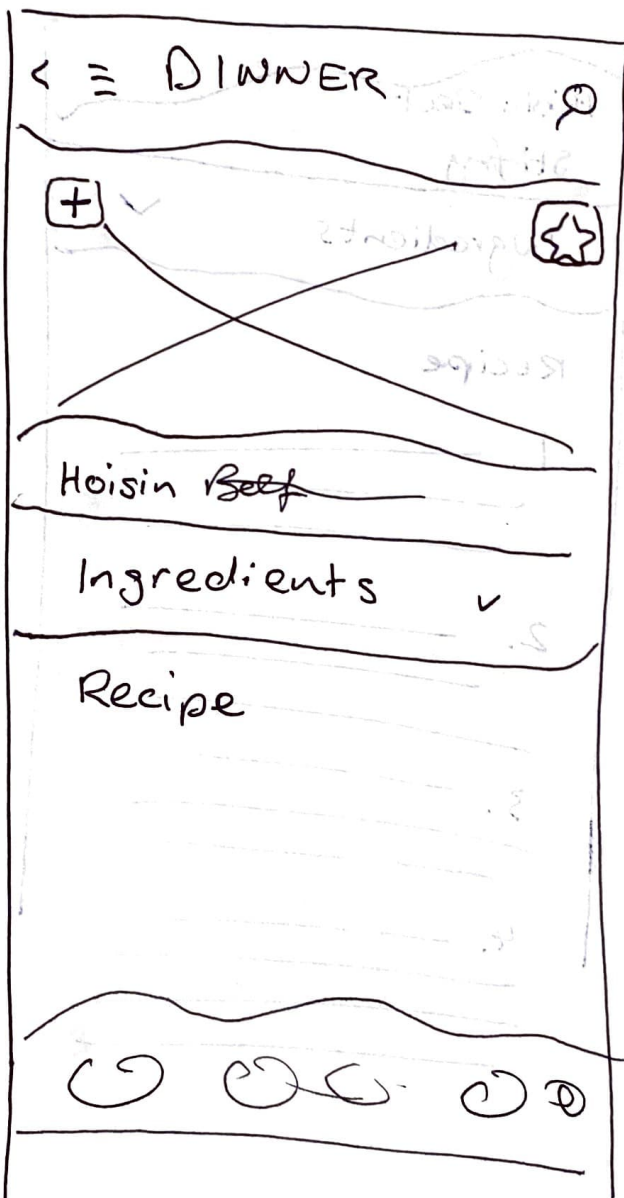 < ≡ DINNER
+
Hoisin Beef
Ingredients
Recipe